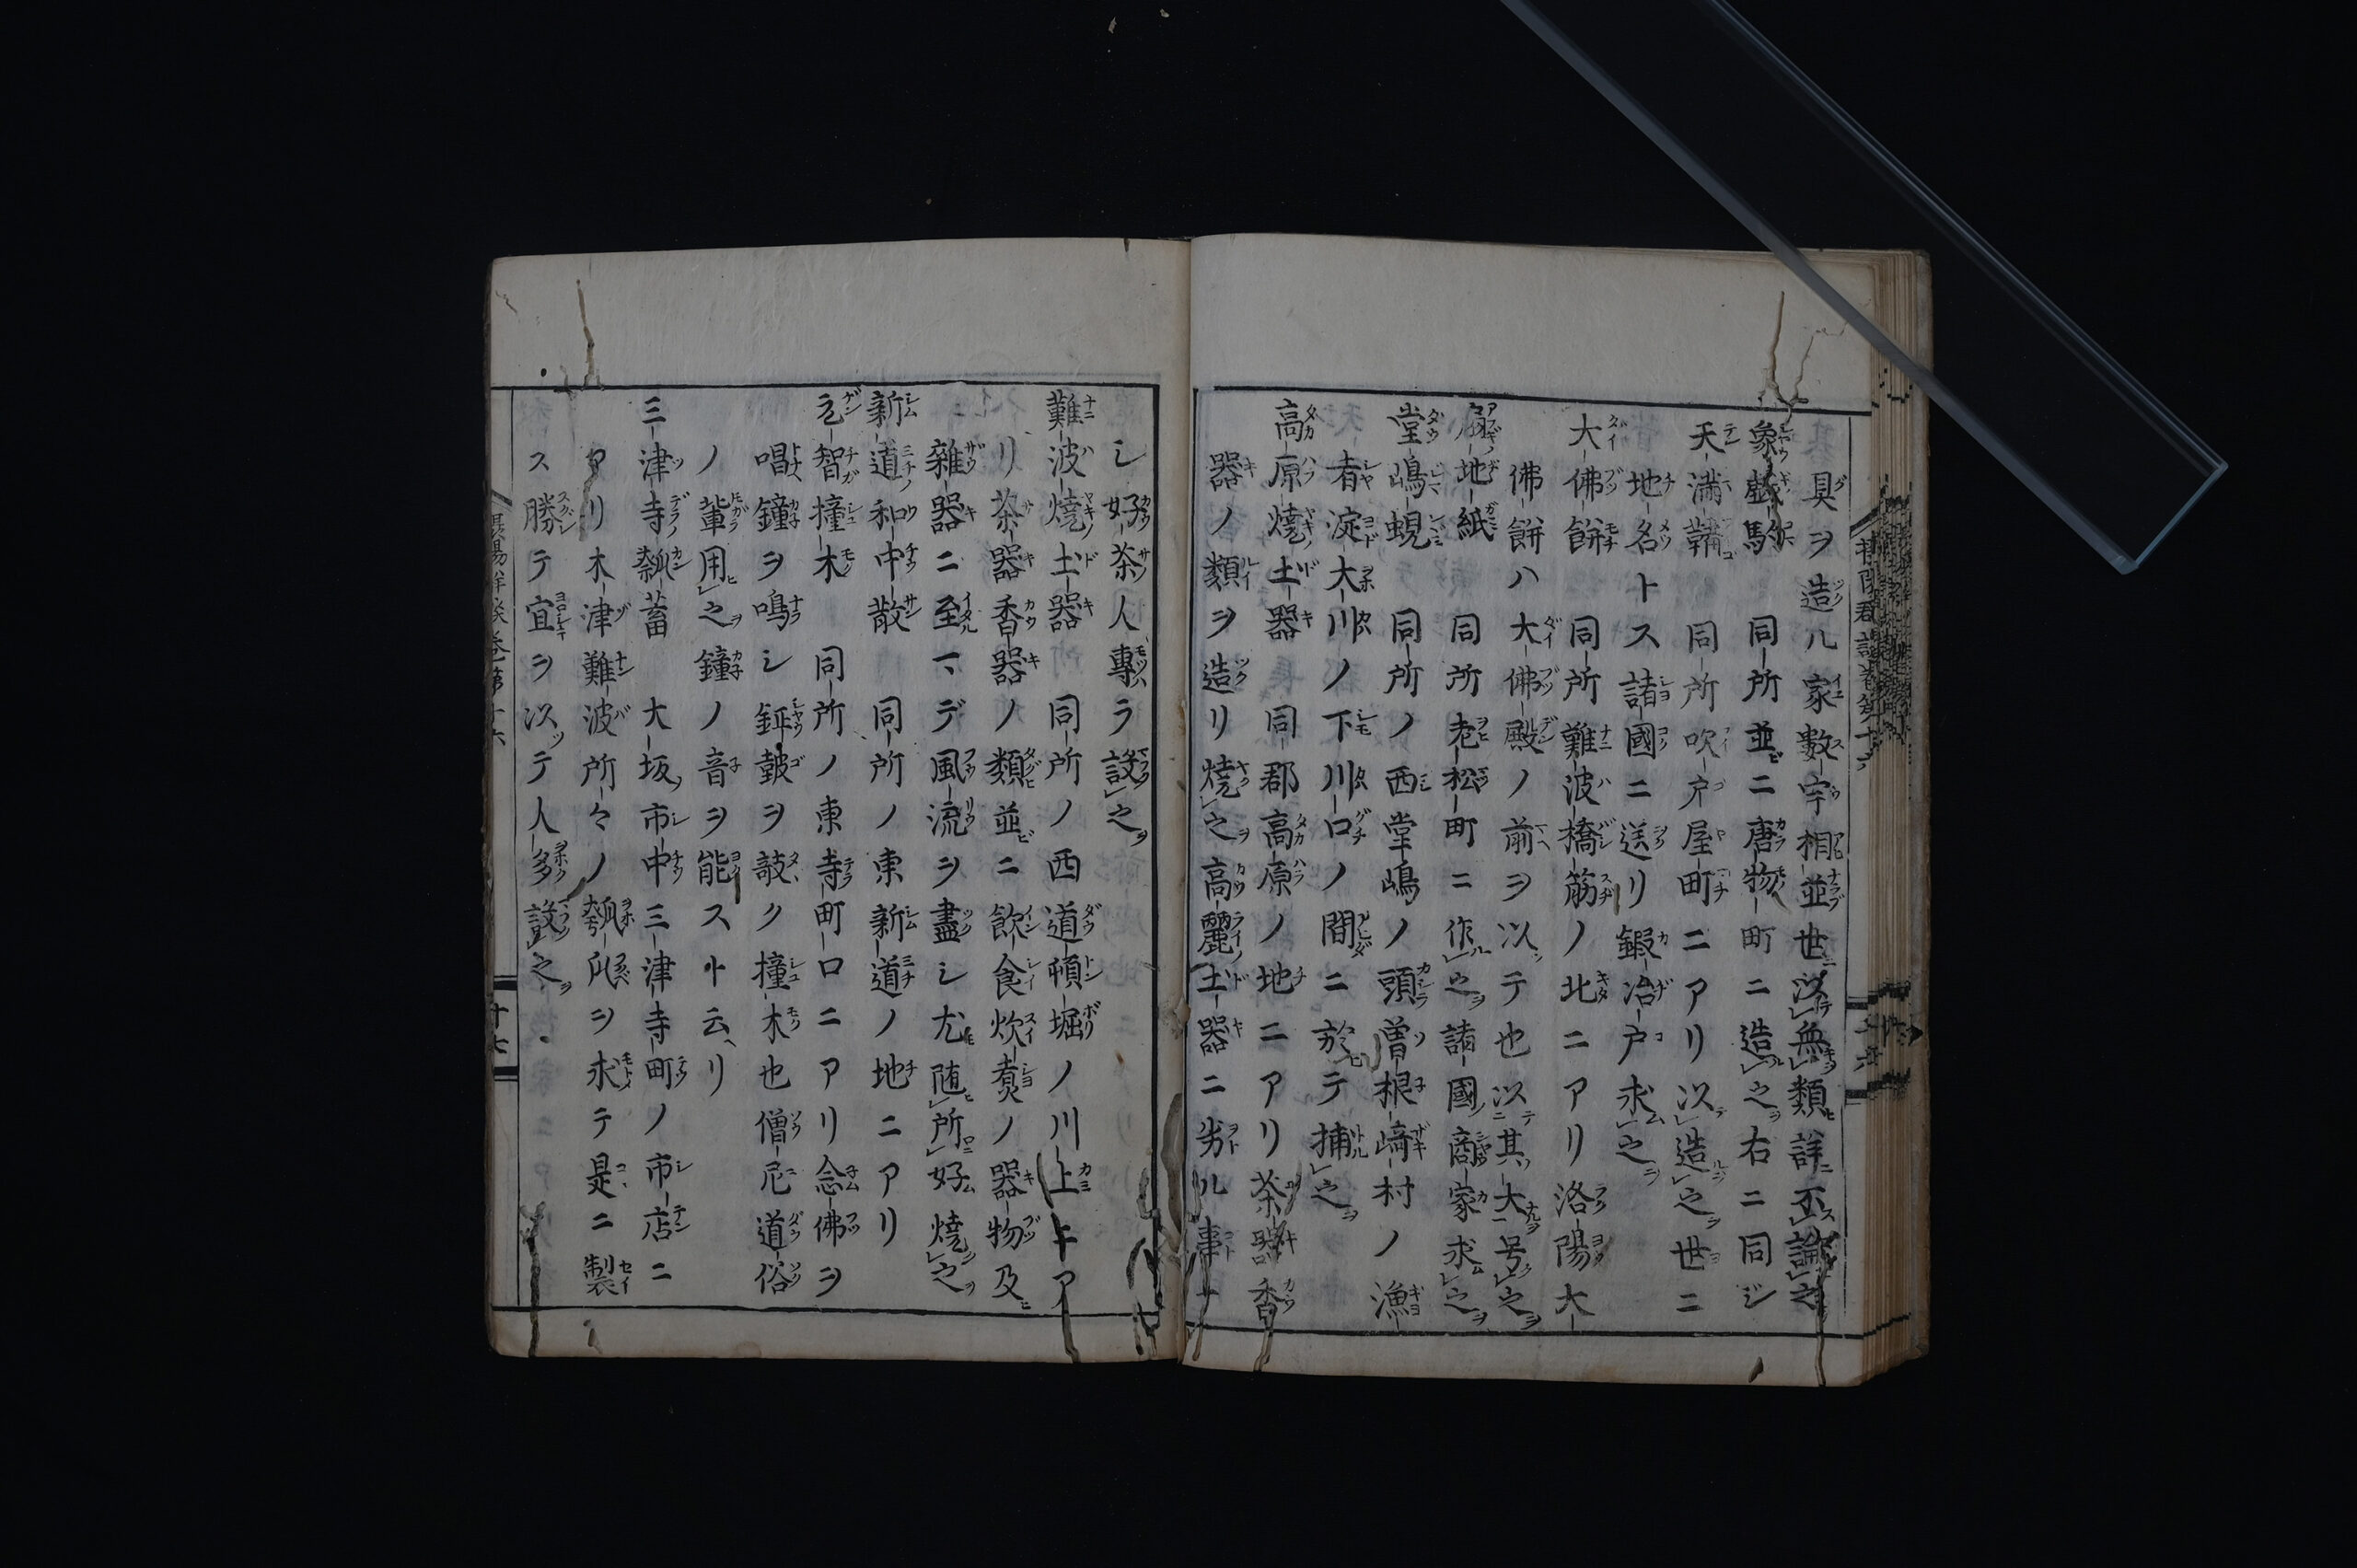 具ヲ造ル家数宇相並世以無類詳不論之
象戯駒　同所並ニ唐物町ニ造之右ニ同ジ
天満鞴　同所吹戸屋町ニアリ以造之世ニ
地名トス諸國ニ送リ鍜冶戸求之
大佛餅　同所難波橋筋ノ北ニアリ洛陽大
佛餅ハ大佛殿ノ前ヲ以テ也以其大号之
扇地紙　同所老松町ニ作之諸國商家求之
堂嶋蜆　同所ノ西堂嶋ノ頭曽根崎村ノ漁
者淀大川ノ下川口ノ間ニ於テ捕之
高原焼土器　同郡高原ノ地ニアリ茶器香
器ノ類ヲ造リ焼之高麗土器ニ劣ル事ナ
シ好茶人專ラ設之
難波焼土器　同所ノ西道頓堀ノ川上トア
リ茶器香器ノ類並ニ飲食炊煮ノ器物及
雜器ニ至マデ風流ヲ盡シ尤随所好焼之
新道和中散　同所ノ東新道ノ地ニアリ
玄智撞木　同所ノ東寺町口ニアリ念佛ヲ
唱鐘ヲ鳴シ鉦鼓ヲ敲ク撞木也僧尼道俗
ノ輩用之鐘ノ音ヲ能スト云ヘリ
三津寺瓢蓄　大坂市中三津寺町ノ市店ニ
アリ木津難波所々ノ瓢瓜ヲ求テ是ニ製
ス勝テ宜ヲ以テ人多設之
摂陽群談巻第十六
十七